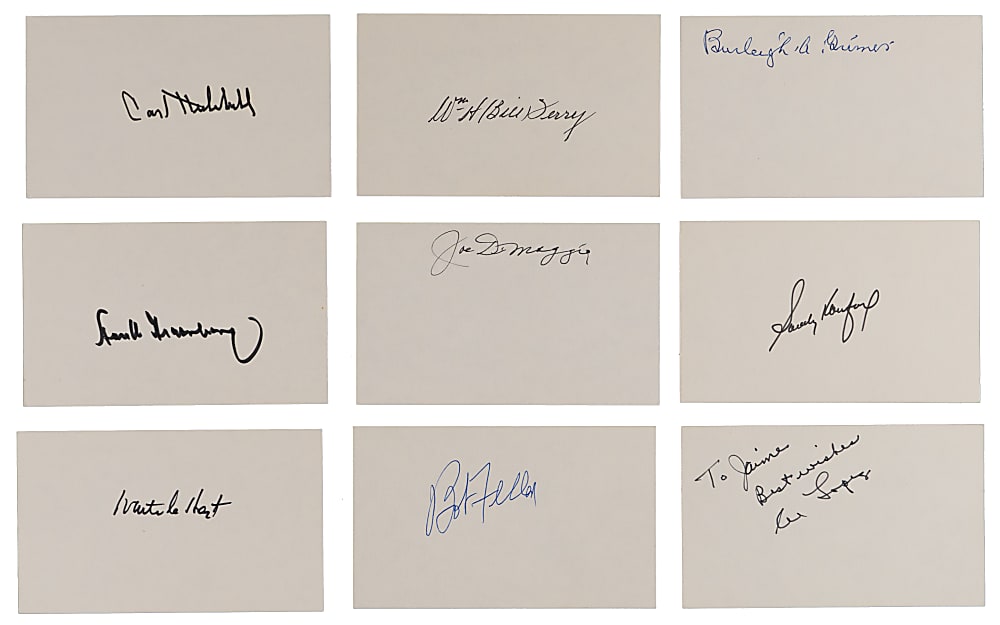 Carl Hubbell
Wm H (Bill) Terry
Burleigh A. Grimes
Hank Greenberg
Joe DiMaggio
Sandy Koufax
Waite Hoyt
Bob Feller
To Jaime
Best wishes
Al Lopez